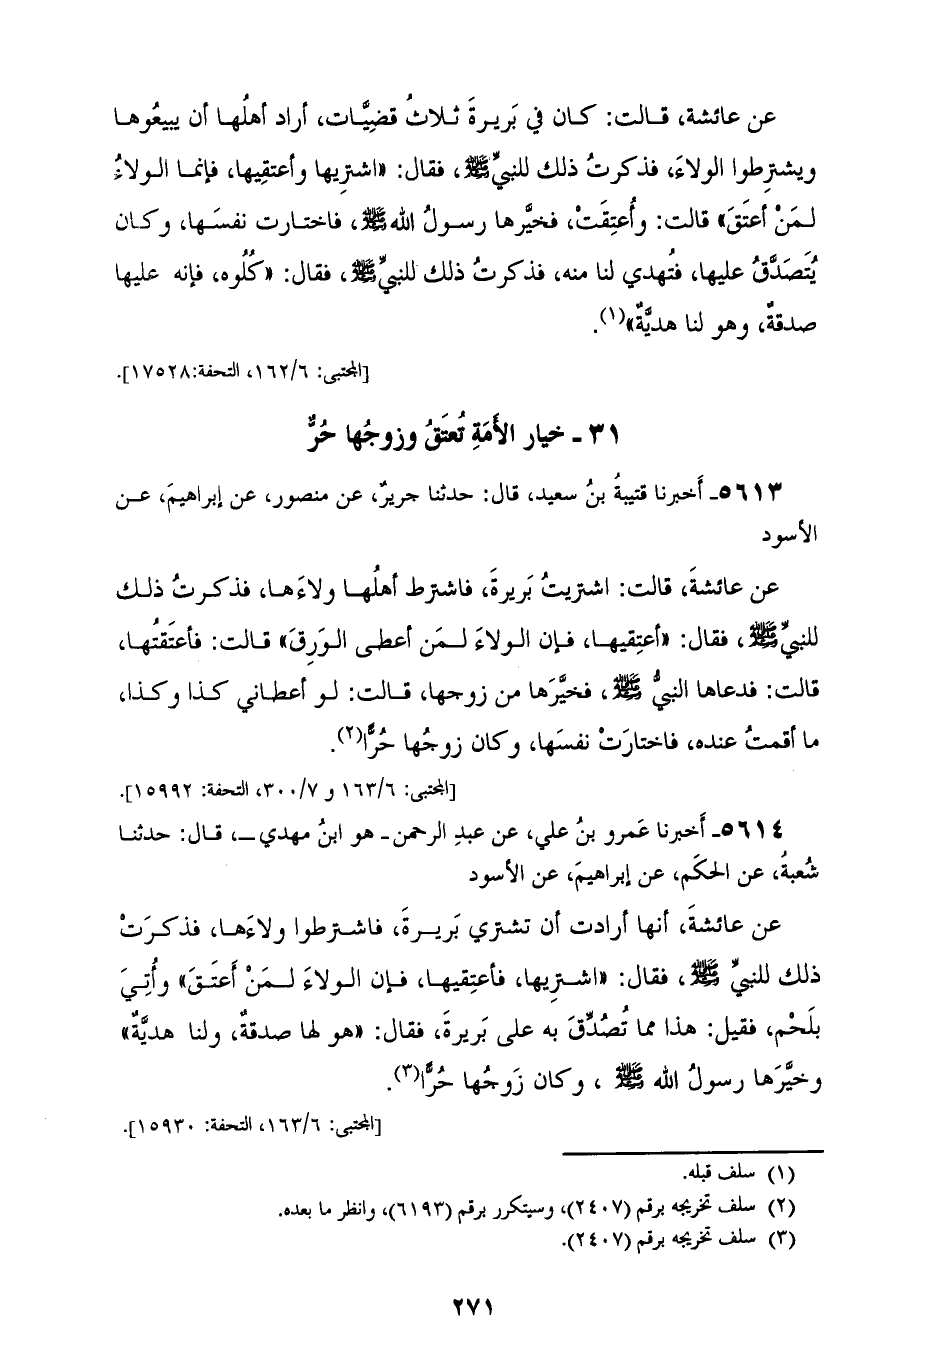 عن عائشة، قـالت: كـان في بَرِيـرةَ ثـلاثُ قضِيَّـات، أراد أهلُهـا أن يبيعُوهـا
ويشترِطوا الولاءَ، فذكرتُ ذلك للنبيِّ ﷺ، فقال: «اشترِيها وأعتقِيها، فإنمـا الـولاءُ
لـمَنْ أعتَقَ» قالت: وأُعتِقَتْ، فخيَّرها رسـولُ الله ﷺ، فاختـارت نفسَـها، وكـان
يُتَصَدَّقُ عليها، فتُهدي لنا منه، فذكرتُ ذلك للنبيِّ ﷺ، فقال: «كُلُوه، فإنه عليها
صدقةٌ، وهو لنا هديَّةٌ»(١).
[المجتبى: ١٦٢/٦، التحفة:١٧٥٢٨].
٣١ - خيار الأَمَةِ تُعتَقُ وزوجُها حُرٌّ
٥٦١٣- أَخبرنا قتيبةُ بنُ سعيد، قال: حدثنا جريرٌ، عن منصور، عن إبراهيمَ، عـن
الأسود
عن عائشةَ، قالت: اشتريتُ بَرِيرةَ، فاشترط أهلُهـا ولاءَهـا، فذكـرتُ ذلـك
للنبيِّ ﷺ، فقال: «أعتِقيهـا، فـإن الـولاءَ لـمَن أعطـى الـوَرِقَ» قـالت: فأعتَقتُهـا،
قالت: فدعاها النبيُّ ﷺ، فخيَّرَها من زوجها، قـالت: لـو أعطـاني كـذا وكـذا،
ما أقمتُ عنده، فاختارَتْ نفسَها، وكان زوجُها حُرًّا(٢).
[المجتبى: ١٦٣/٦ و ٣٠٠/٧، التحفة: ١٥٩٩٢].
٥٦١٤- أَخبرنا عَمرو بنُ علي، عن عبدِ الرحمن- هو ابنُ مهدي-، قـال: حدثنـا
شُعبةُ، عن الحكَم، عن إبراهيمَ، عن الأسود
عن عائشةَ، أنها أرادت أن تشتري بَرِيـرةَ، فاشـترطوا ولاءَهـا، فذكـرَتْ
ذلك للنبيِّ ﷺ، فقال: «اشـترِيها، فأعتِقيهـا، فـإن الـولاءَ لـمَنْ أَعتَـقَ» وأُتِـيَ
بلَحْم، فقيل: هذا مما تُصُدِّقَ به على بَرِيرةَ، فقال: «هو لها صدقةٌ، ولنا هديَّةٌ»
وخيَّرَها رسولُ الله ﷺ ، وكان زَوجُها حُرًّا(٣).
[المجتبى: ١٦٣/٦، التحفة: ١٥٩٣٠].
(١) سلف قبله.
(٢) سلف تخريجه برقم (٢٤٠٧)، وسيتكرر برقم (٦١٩٣)، وانظر ما بعده.
(٣) سلف تخريجه برقم (٢٤٠٧).
٢٧١